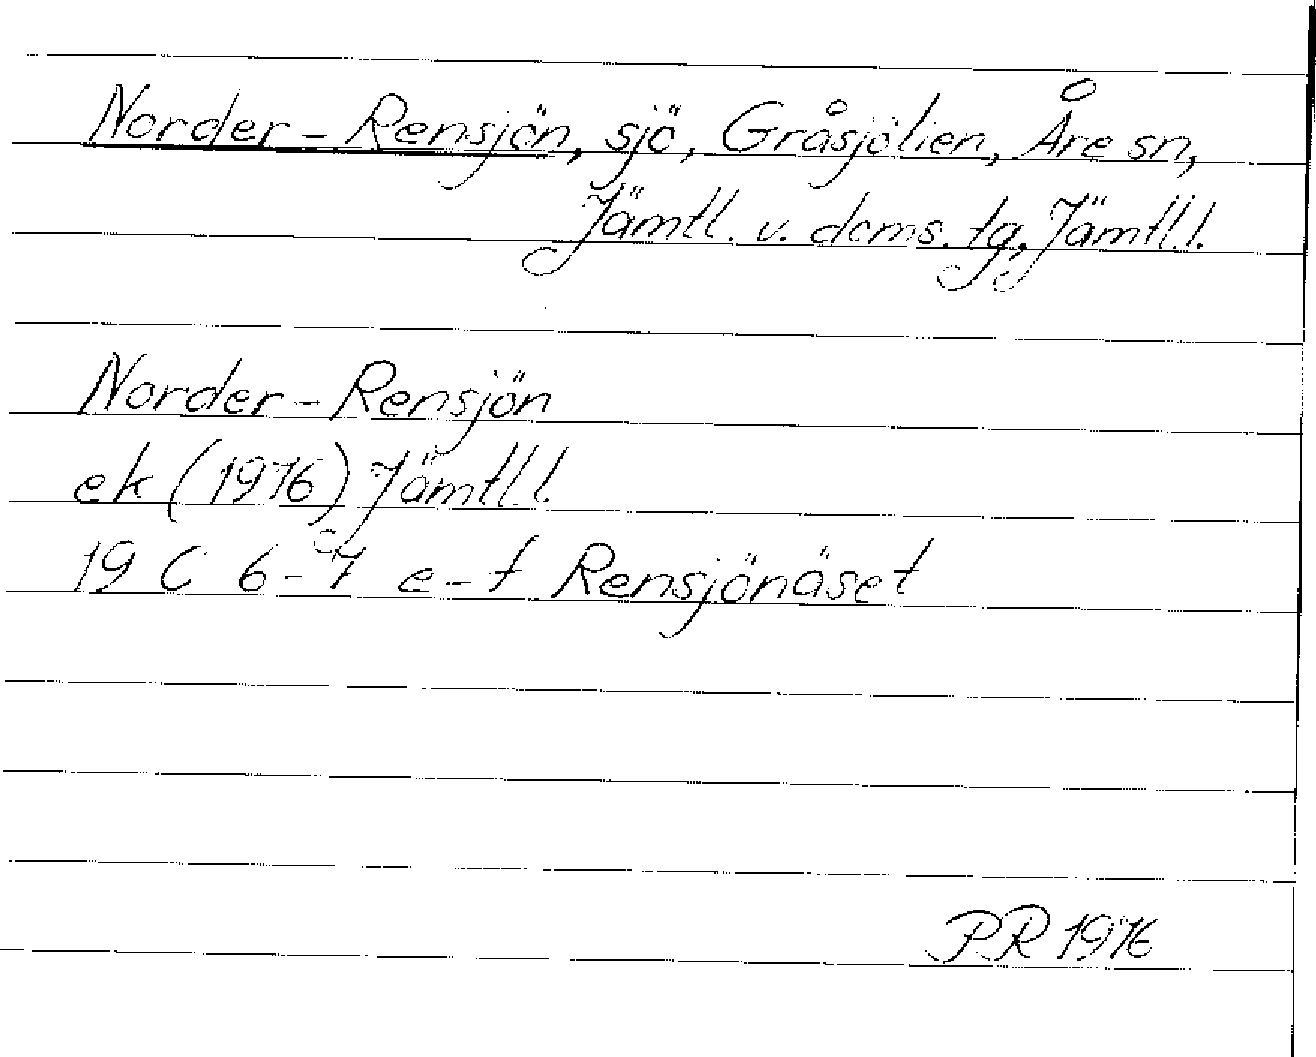 Norder-Rensjön, sjö, Gråsjölien, Åre sn,
Jämtl. v. doms. tg, Jämtl. l.
Norder-Rensjön
ek (1976) Jämtl. l.
19 C 6-7 e-f Rensjönäset
PR 1976